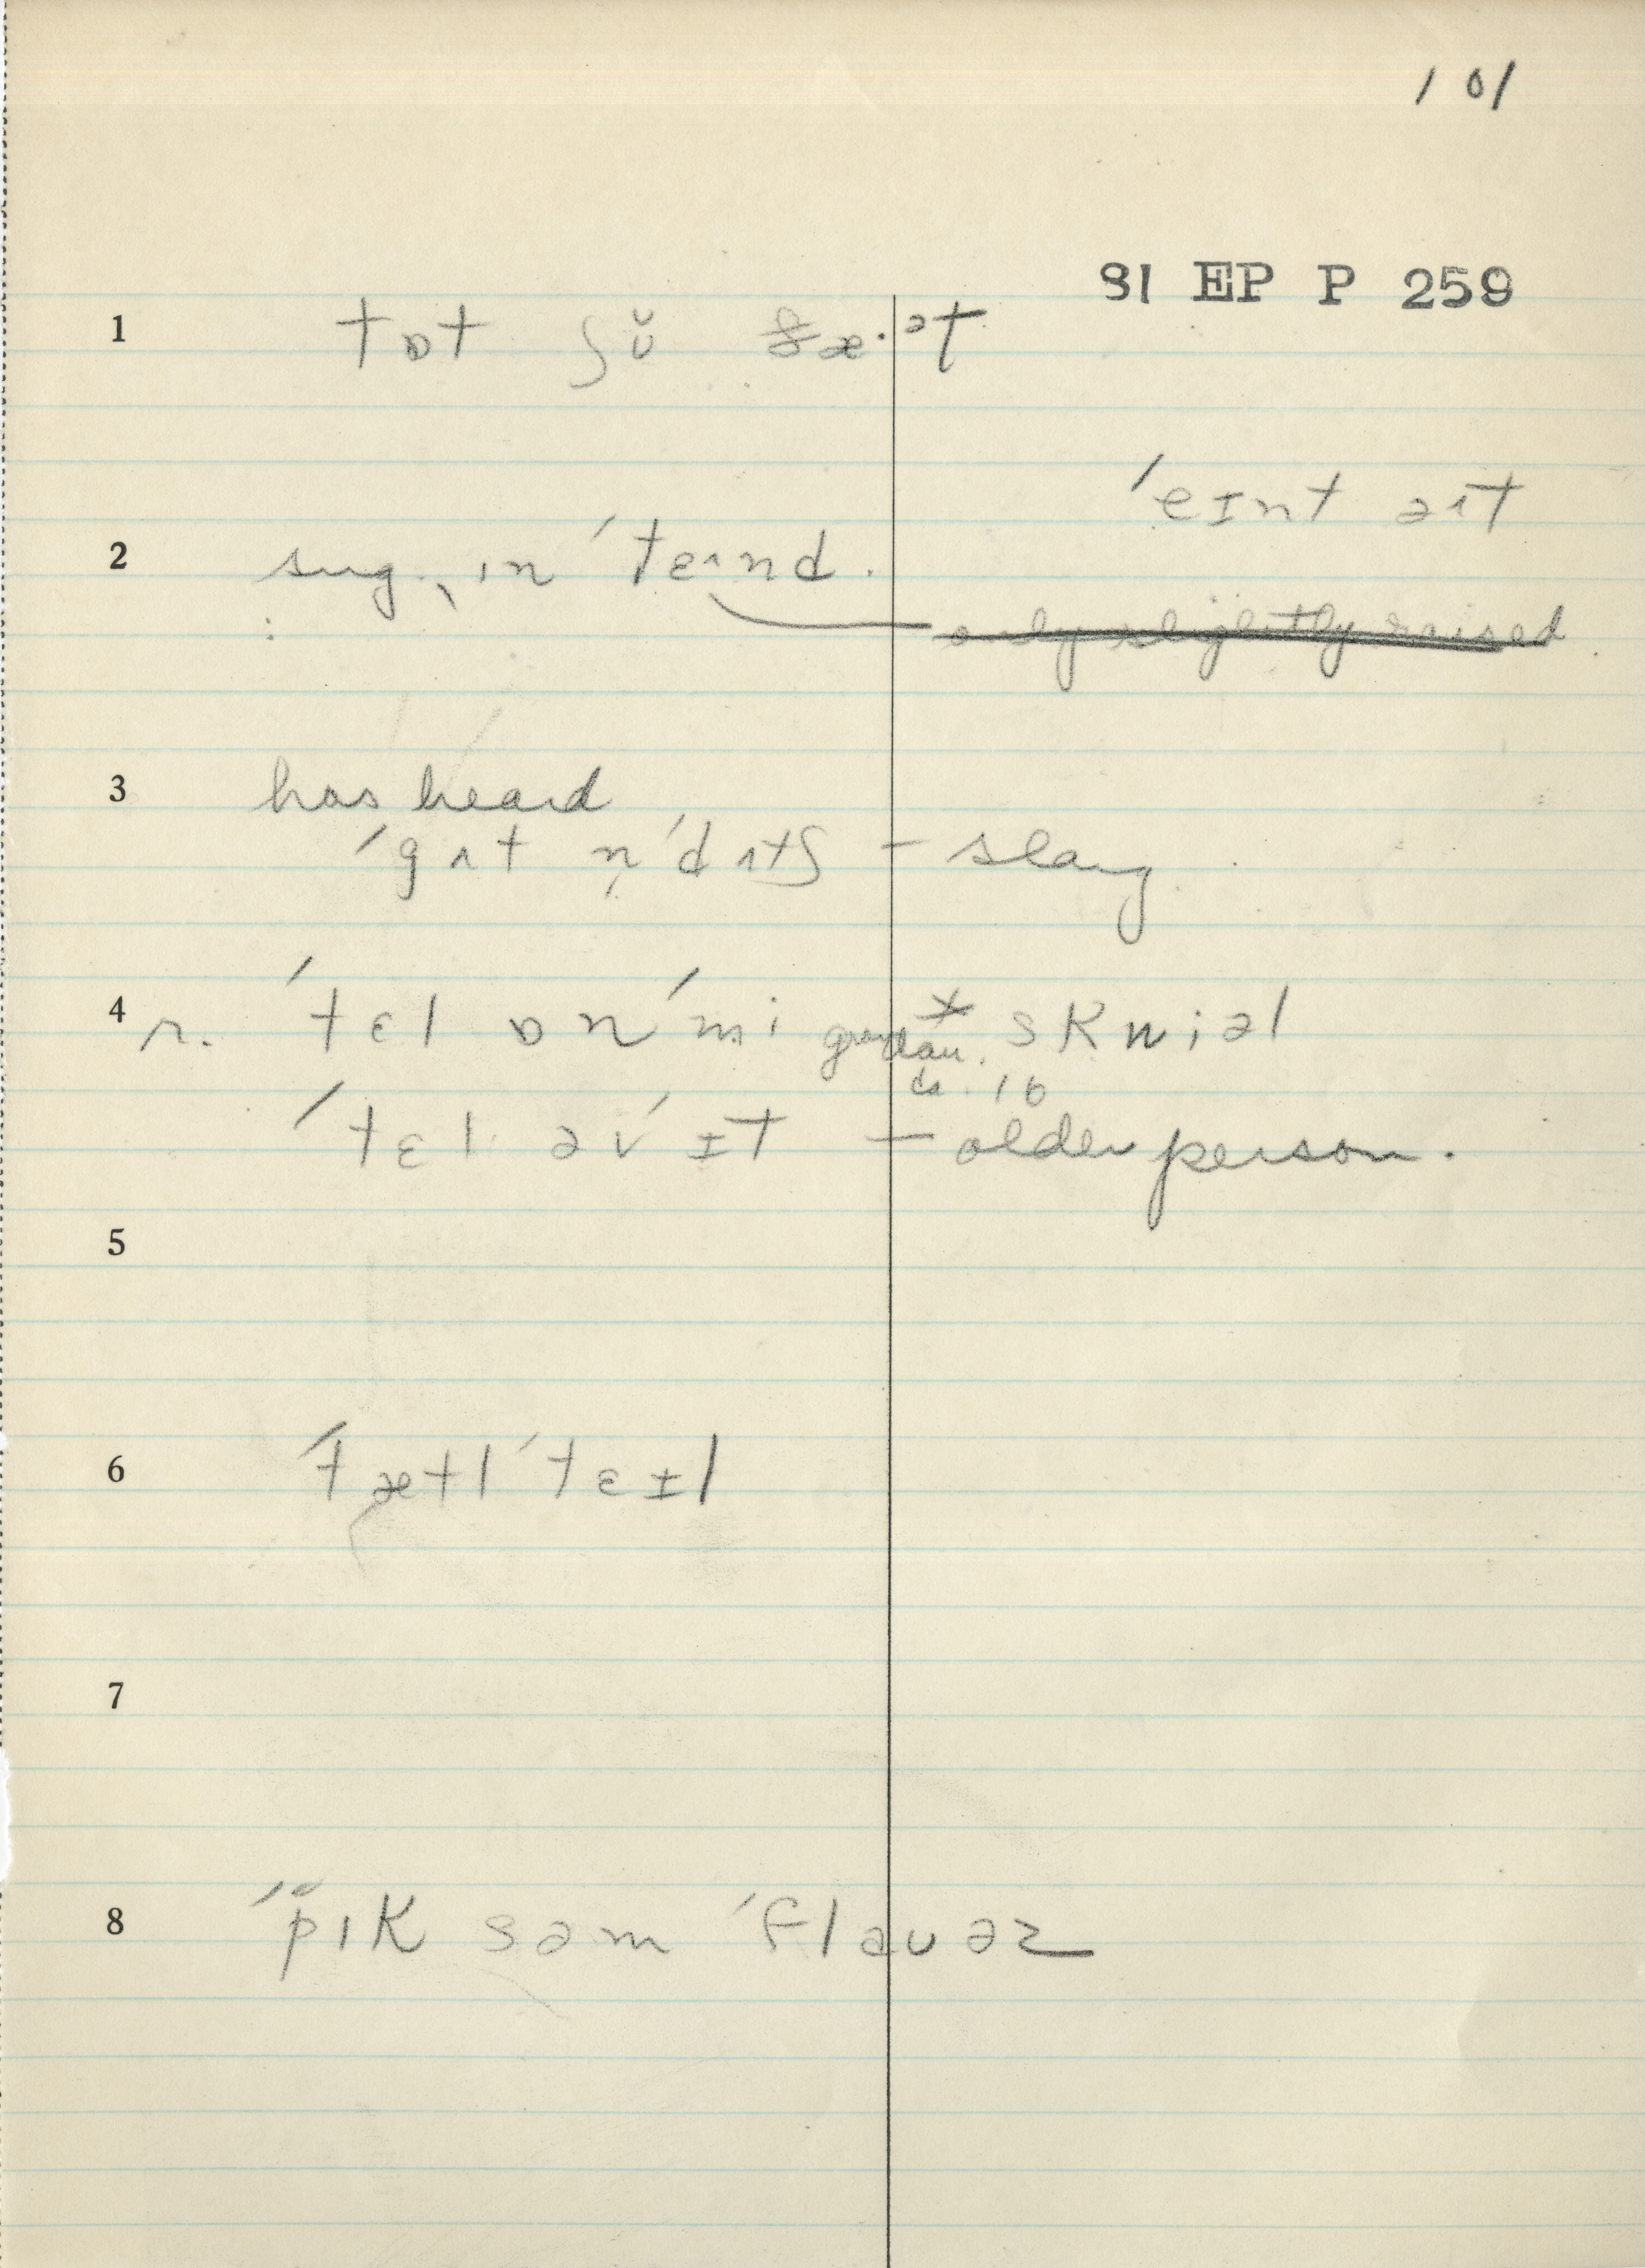 101
81 EP P 259
1 tɒt ʃʊ̆ ðæ·ət
'eɪnt əɪt
2 sug. ˎɪn 'tɛɪnd.
only slightly raised
3 has heard
'gɪt n̩'dɪtʃ – slang
4 r. 'tɛl ɒn 'mi * skwiəl
dau. 16
'tɛl əv 'ɪt – older person.
5
6 'tætl 'tɛɪl
7
8 'pɪk səm 'flaʊəz